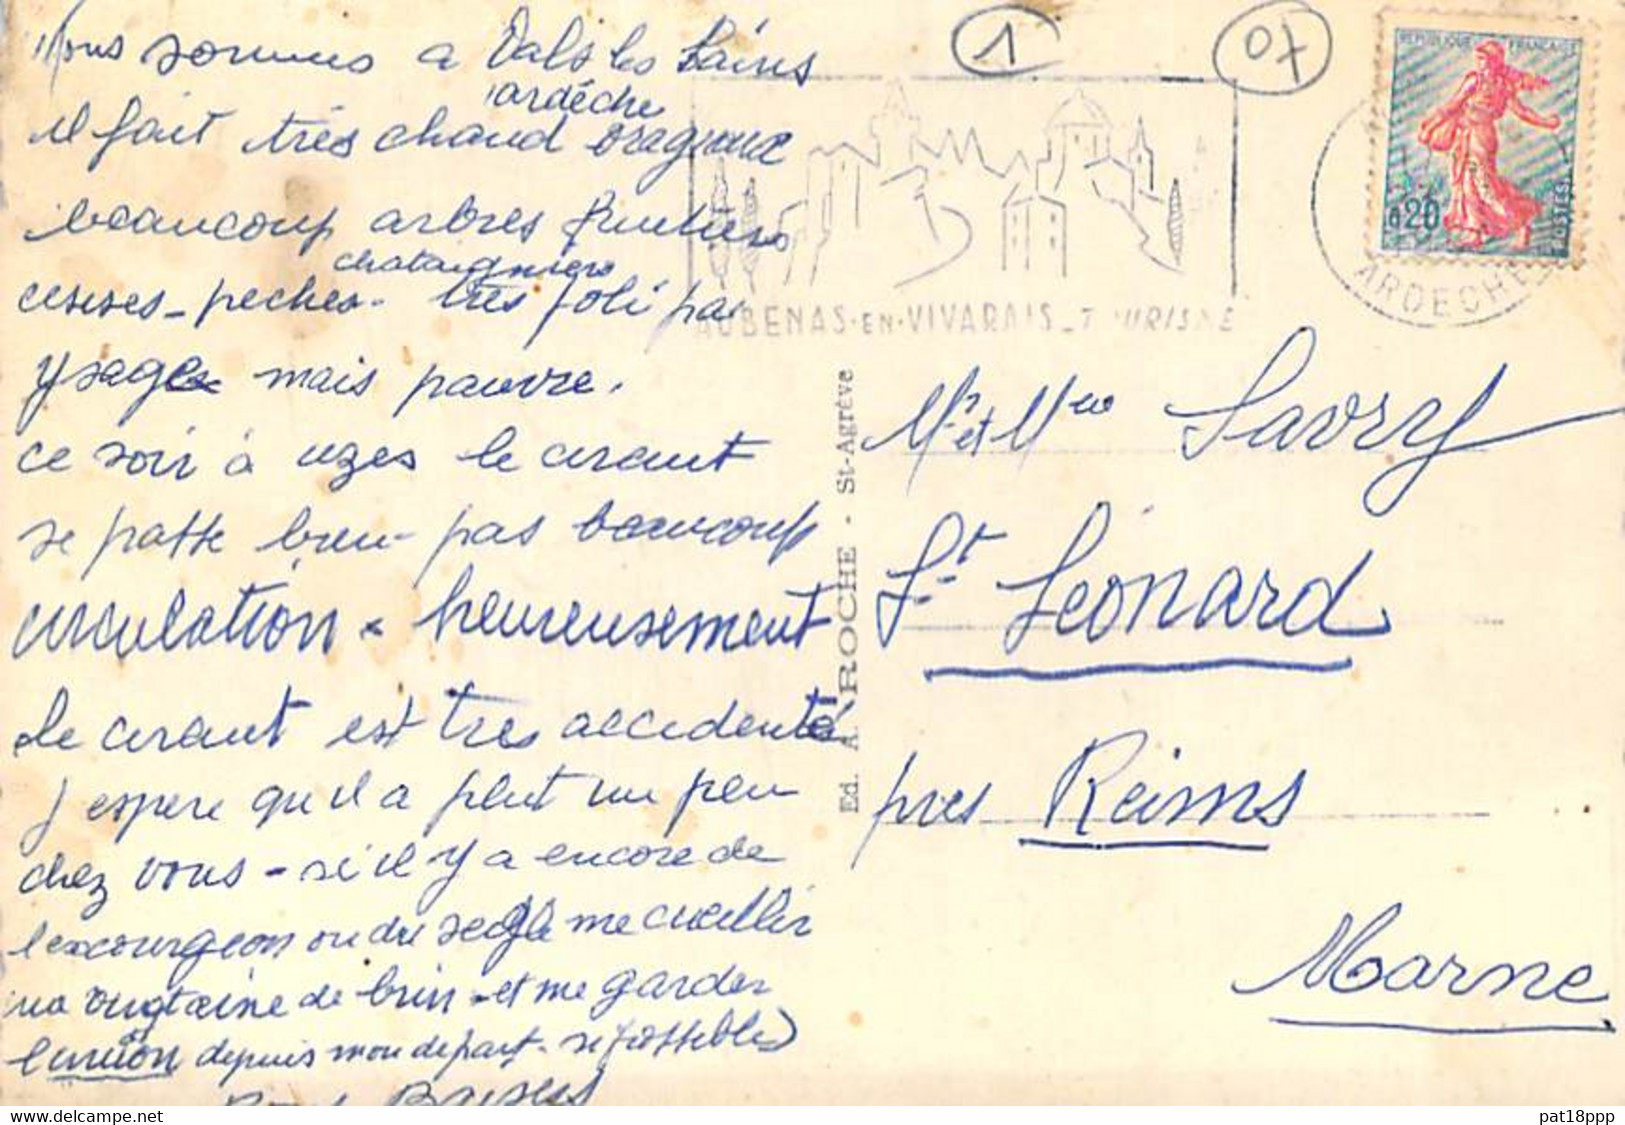 Nous sommes a Vals les Bains
ardéche
il fait très chaud orageux
beaucoup arbres fruitiers
chataigniers
cerises - peches - très joli pa
ysage mais pauvre.
ce soir à uzes le circuit
se passe bien - pas beaucoup
circulation - heureusement
le circuit est tres accidenté
j espere qu il a pleut un peu
chez vous - si il y a encore de
l escourgeon ou du seigle me cueillir
une vingtaine de brin - et me garder
l'union depuis mon depart - si possible)
Bons Baisers
1
07
REPUBLIQUE FRANÇAISE
0,20
POSTES
ARDECHE
AUBENAS-EN-VIVARAIS_TOURISME
Ed. A. ROCHE - St-Agrève
Mr et Mme Savry
St Léonard
pres Reims
Marne
pat18ppp